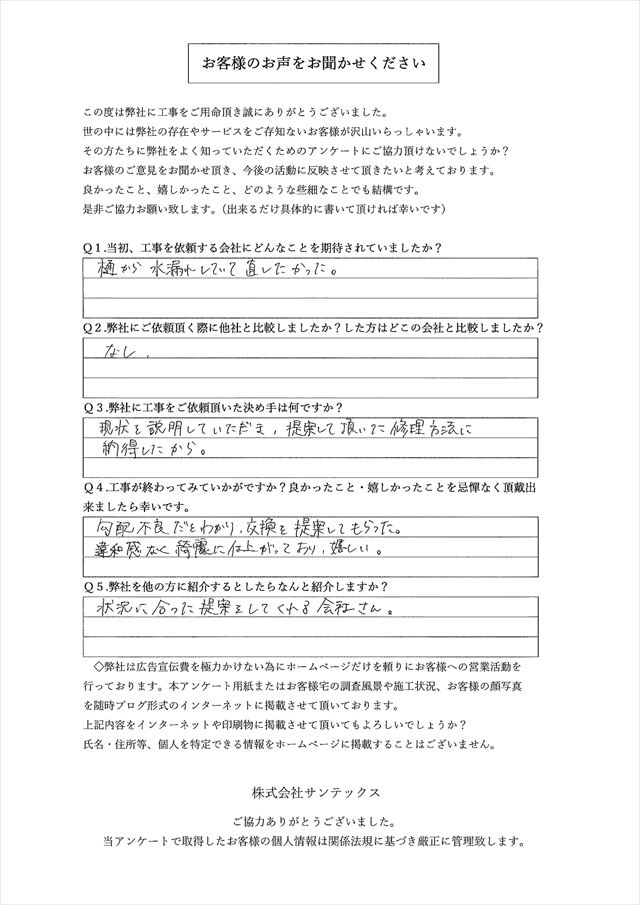 お客様のお声をお聞かせください
この度は弊社に工事をご用命頂き誠にありがとうございました。
世の中には弊社の存在やサービスをご存知ないお客様が沢山いらっしゃいます。
その方たちに弊社をよく知っていただくためのアンケートにご協力頂けないでしょうか？
お客様のご意見をお聞かせ頂き、今後の活動に反映させて頂きたいと考えております。
良かったこと、嬉しかったこと、どのような些細なことでも結構です。
是非ご協力お願い致します。（出来るだけ具体的に書いて頂ければ幸いです）
Ｑ１.当初、工事を依頼する会社にどんなことを期待されていましたか？
樋から水漏れしていて直したかった。
Ｑ２.弊社にご依頼頂く際に他社と比較しましたか？した方はどこの会社と比較しましたか？
なし、
Ｑ３.弊社に工事をご依頼頂いた決め手は何ですか？
現状を説明していただき、提案して頂いた修理方法に
納得したから。
Ｑ４.工事が終わってみていかがですか？良かったこと・嬉しかったことを忌憚なく頂戴出
来ましたら幸いです。
勾配不良だとわかり、交換を提案してもらった。
違和感なく綺麗に仕上がっており、嬉しい。
Ｑ５.弊社を他の方に紹介するとしたらなんと紹介しますか？
状況に合った提案をしてくれる会社さん。
◇弊社は広告宣伝費を極力かけない為にホームページだけを頼りにお客様への営業活動を
行っております。本アンケート用紙またはお客様宅の調査風景や施工状況、お客様の顔写真
を随時ブログ形式のインターネットに掲載させて頂いております。
上記内容をインターネットや印刷物に掲載させて頂いてもよろしいでしょうか？
氏名・住所等、個人を特定できる情報をホームページに掲載することはございません。
株式会社サンテックス
ご協力ありがとうございました。
当アンケートで取得したお客様の個人情報は関係法規に基づき厳正に管理致します。